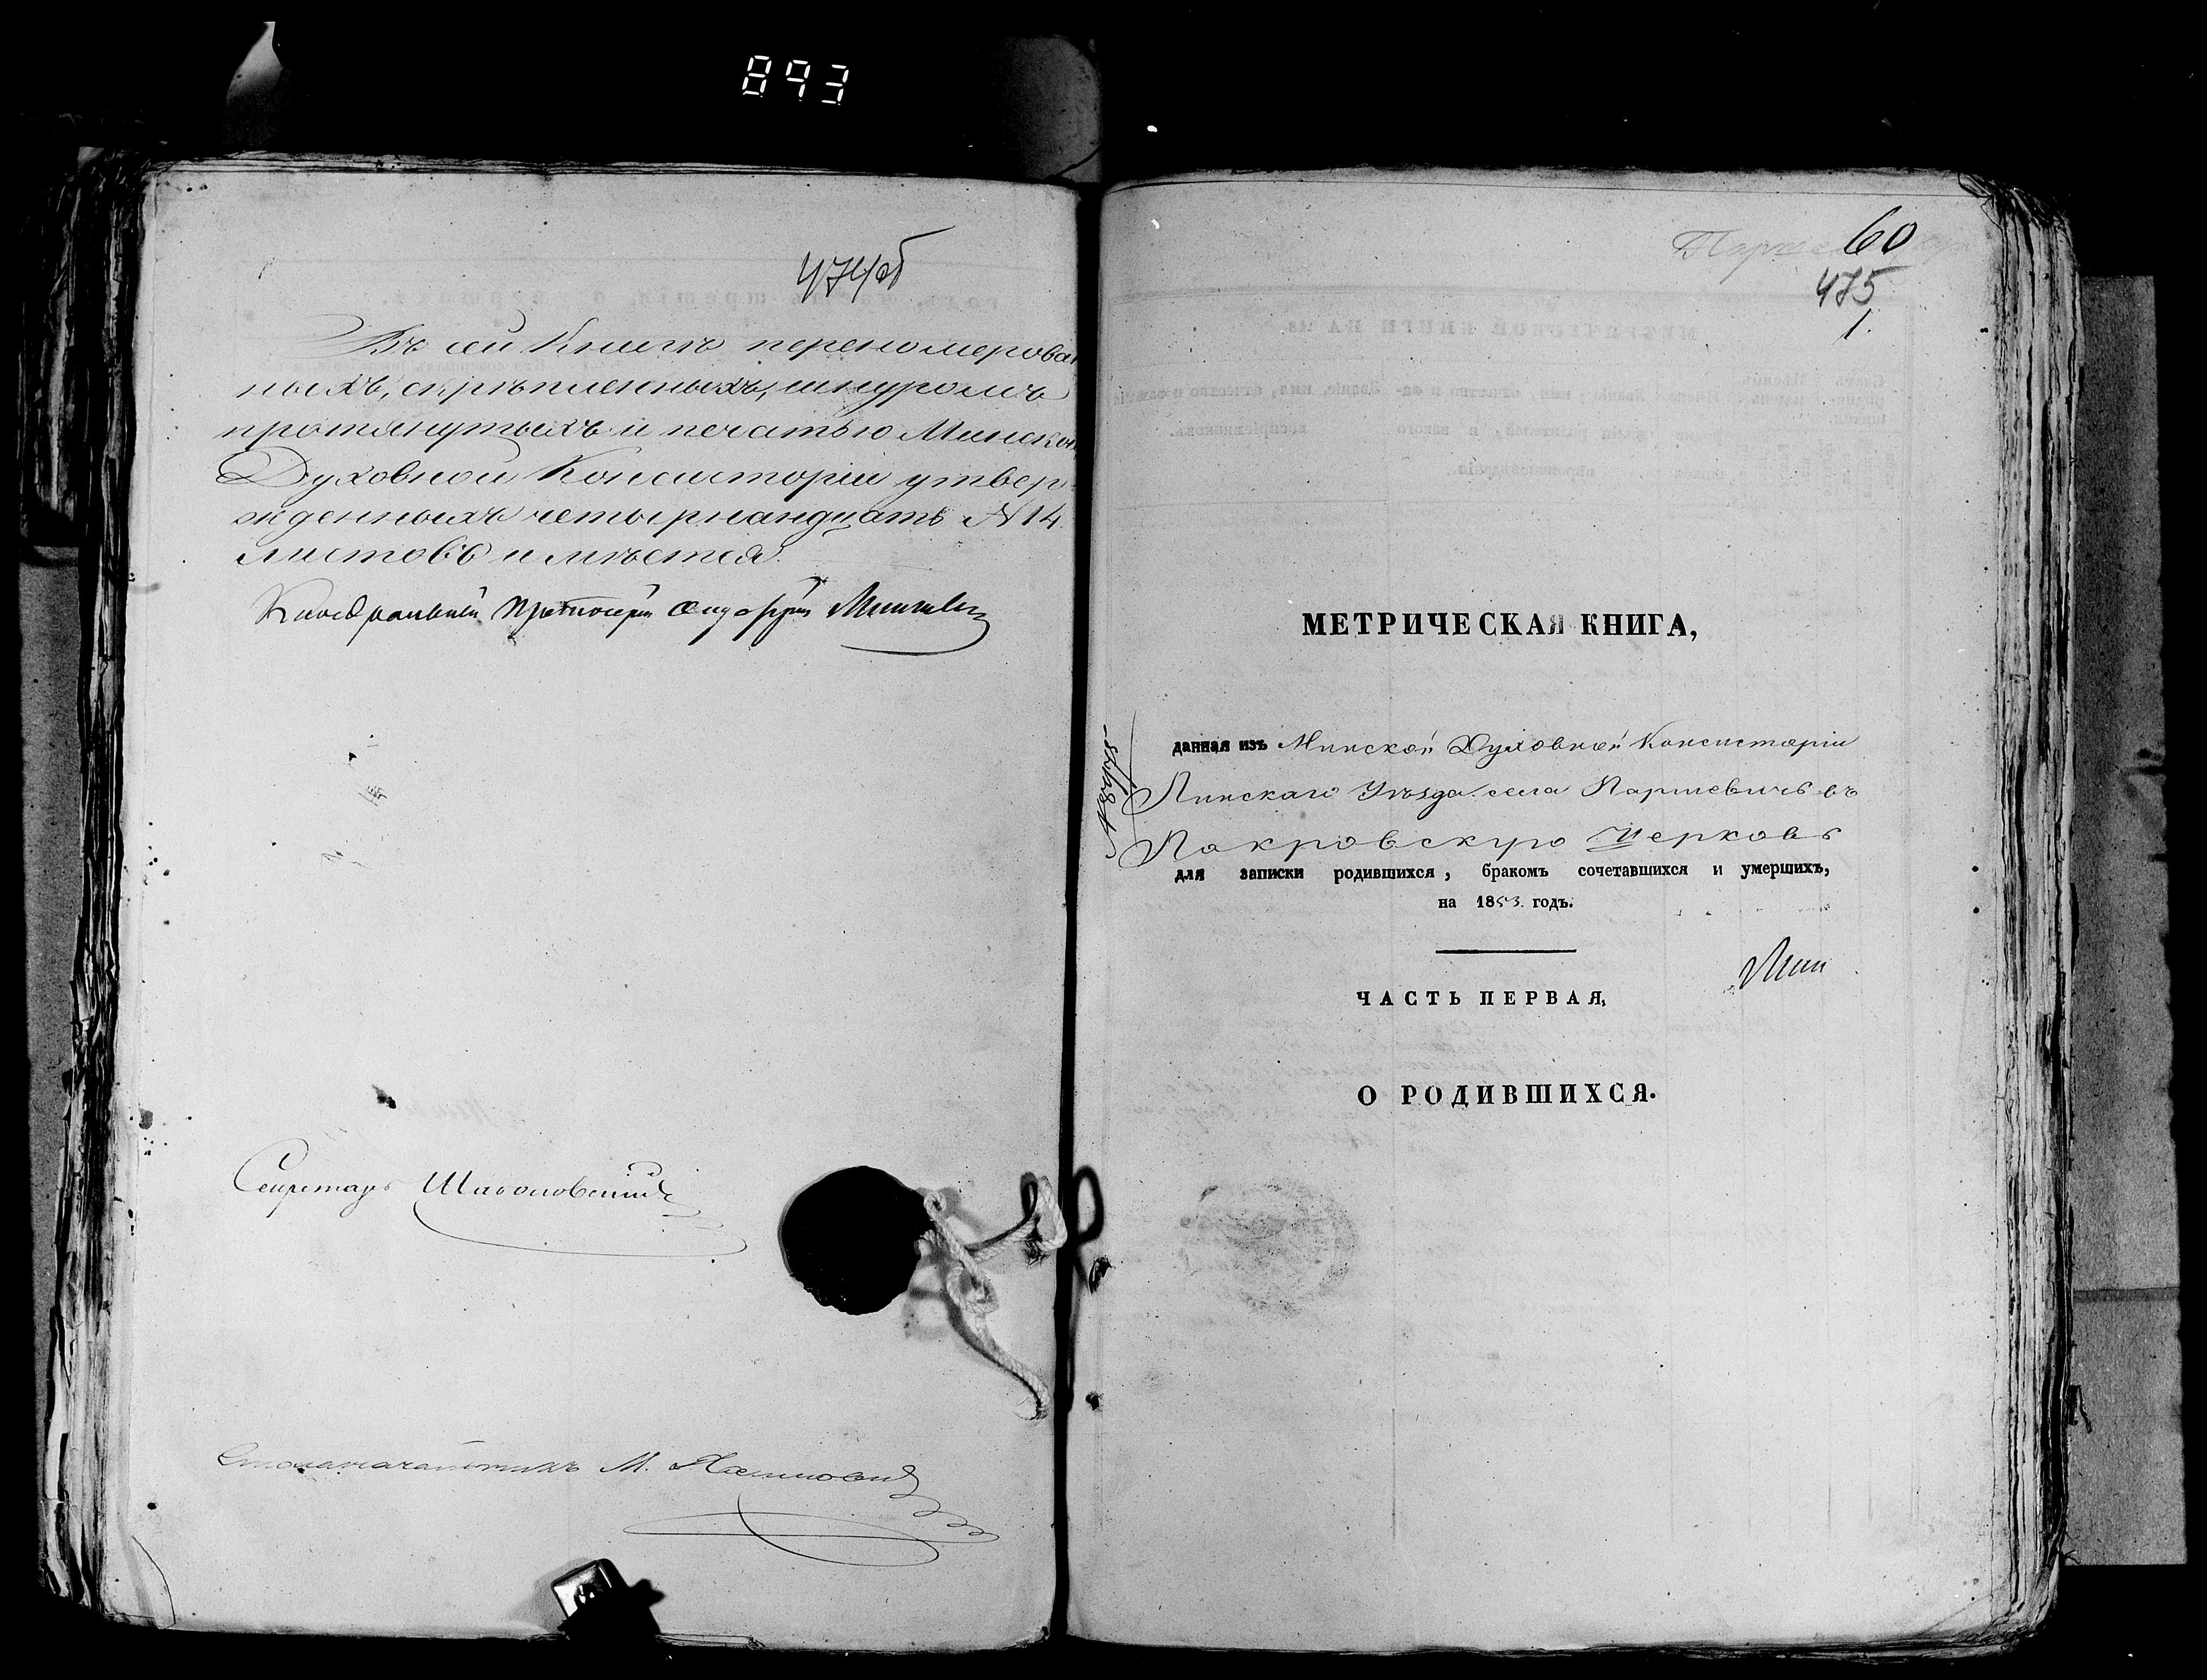 893
474об
Въ сей Книгѣ переномерован
ныхъ, скрѣпленныхъ, шнуромъ
протянутыхъ и печатью Минской
Духовной Консисторіи утвер
жденныхъ четырнандцать №14
листовъ имѣется.
Каѳедральный Протоіерей
Секретарь
Столоначальникъ М.
60
475
1.
МЕТРИЧЕСКАЯ КНИГА,
данная изъ Минской Духовной Консисторіи
Пинскаго Уѣзда села Паршевичъ въ
Покровскую Церковь
для записки родившихся, бракомъ сочетавшихся и умершихъ,
на 1853. годъ.
Мин
ЧАСТЬ ПЕРВАЯ,
О РОДИВШИХСЯ.